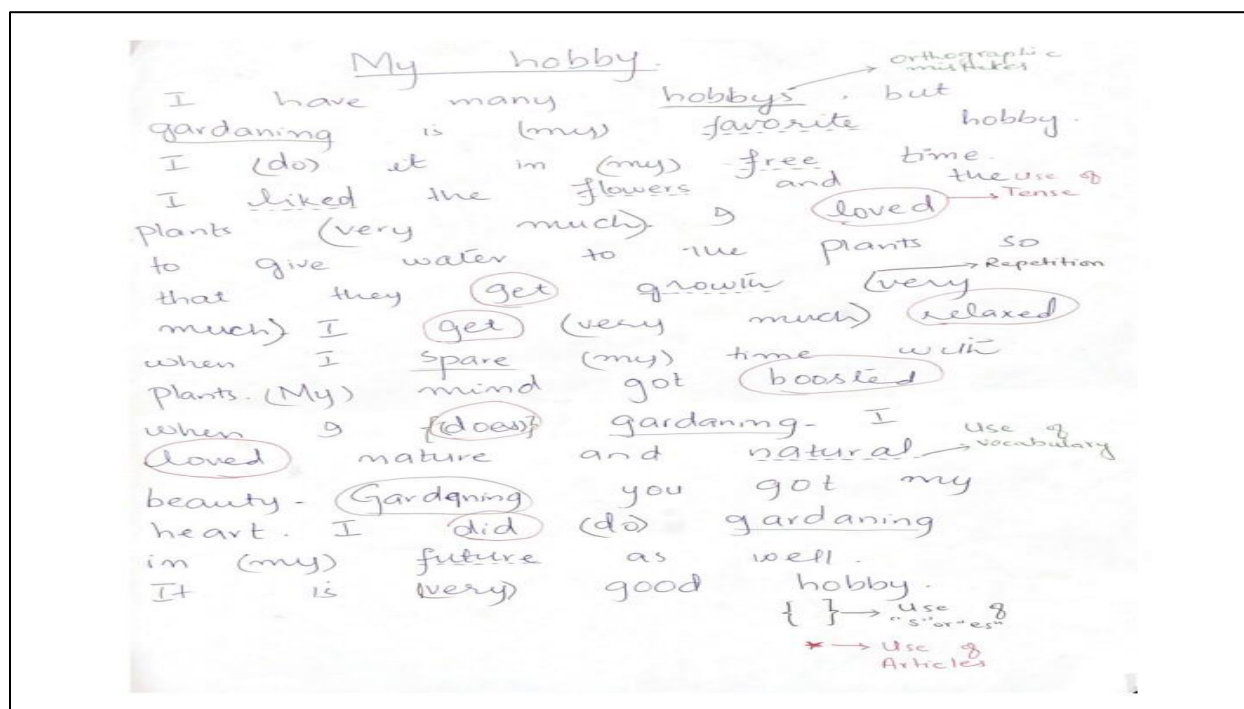 My hobby.
orthographic mistakes
I have many hobbys. but
gardaning is (my) favorite hobby.
I (do) it in (my) free time.
I liked the flowers and the
Use of Tense
plants (very much) I loved
to give water to the plants so
Repetition
that they get growth (very
much) I get (very much) relaxed
when I spare (my) time with
plants. (My) mind got boosted
when I {(does)} gardaning. I
Use of vocabulary
loved nature and natural
beauty. Gardaning you got my
heart. I did (do) gardaning
in (my) future as well.
It is (very) good hobby.
{ } → Use of "s" or "es"
* → Use of Articles